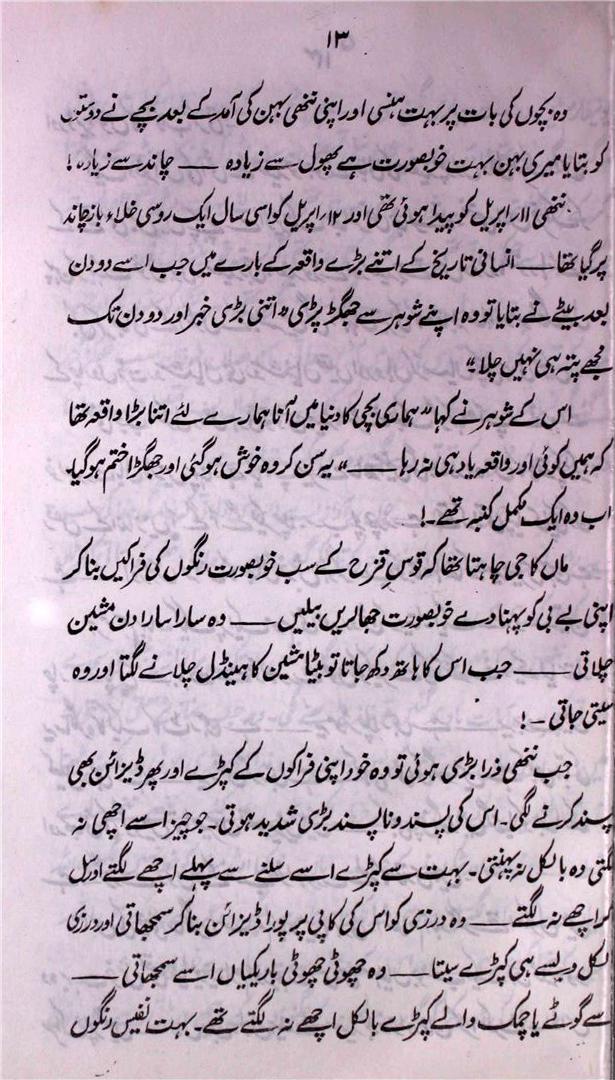 ۱۳
وہ بچوں کی بات پر بہت ہنسی اور اپنی ننھی بہن کی آمد کے بعد بچے نے دوستوں
کو بتایا میری بہن بہت خوبصورت ہے پھول سے زیادہ — چاند سے زیادہ!
ننھی ۱۱ اپریل کو پیدا ہوئی تھی اور ۱۲ اپریل کو اسی سال ایک روسی خلاء باز چاند
پر گیا تھا — انسانی تاریخ کے اتنے بڑے واقعہ کے بارے میں جب اسے دو دن
بعد بیٹے نے بتایا تو وہ اپنے شوہر سے جھگڑ پڑی "اتنی بڑی خبر اور دو دن تک
مجھے پتہ ہی نہیں چلا"
اس کے شوہر نے کہا "ہماری بچی کا دنیا میں آنا ہمارے لئے اتنا بڑا واقعہ تھا
کہ ہمیں کوئی اور واقعہ یاد ہی نہ رہا —" یہ سن کر وہ خوش ہو گئی اور جھگڑا ختم ہو گیا۔
اب وہ ایک مکمل کنبہ تھے۔!
ماں کا جی چاہتا تھا کہ قوسِ قزح کے سب خوبصورت رنگوں کی فراکیں بنا کر
اپنی بے بی کو پہنا دے خوبصورت جھالریں بیلیں — وہ سارا سارا دن مشین
چلاتی — جب اس کا ہاتھ دکھ جاتا تو بیٹا مشین کا ہینڈل چلانے لگتا اور وہ
سیتی جاتی —!
جب ننھی ذرا بڑی ہوئی تو وہ خود اپنی فراکوں کے کپڑے اور پھر ڈیزائن بھی
پسند کرنے لگی۔ اس کی پسند و ناپسند بڑی شدید ہوتی۔ جو چیز اسے اچھی نہ
لگتی وہ بالکل نہ پہنتی۔ بہت سے کپڑے اسے سلنے سے پہلے اچھے لگتے اور سل
کر اچھے نہ لگتے — وہ درزی کو اس کی کاپی پر پورا ڈیزائن بنا کر سمجھاتی اور درزی
بالکل ویسے ہی کپڑے سیتا — وہ چھوٹی چھوٹی باریکیاں اسے سمجھاتی —
اسے گوٹے یا چمک والے کپڑے بالکل اچھے نہ لگتے تھے۔ بہت نفیس رنگوں